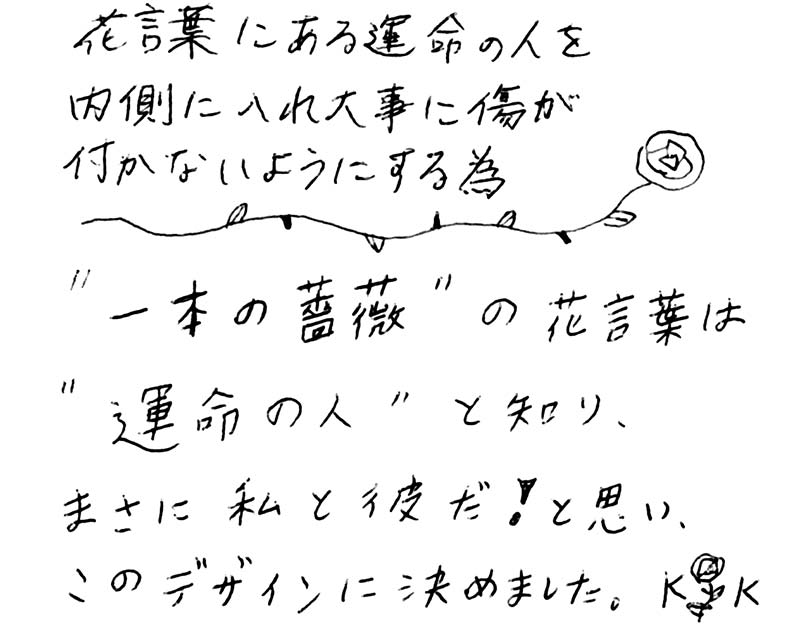 花言葉にある運命の人を
内側に入れ大事に傷が
付かないようにする為
"一本の薔薇"の花言葉は
"運命の人"と知り、
まさに私と彼だ!と思い、
このデザインに決めました。K K